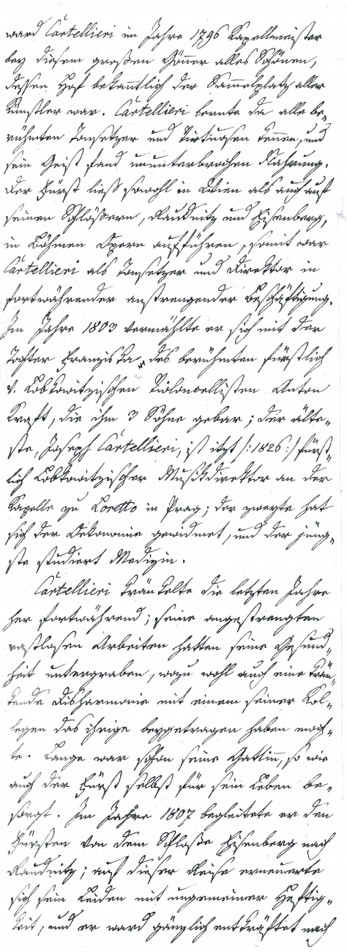 ward Cartellieri im Jahre 1796 Kapellmeister
bey diesem großen Gönner alles Schönen,
dessen Hof bekanntlich der Sammelplatz aller
Künstler war. Cartellieri lernte da alle be-
rühmten Tonsetzer und Virtuosen kennen, und
sein Geist fand ununterbrochen Nahrung.
Der Fürst ließ sowohl in Wien als auch auf
seinen Schlößern, Raudnitz und Eisenberg,
in Böhmen Opern aufführen, somit war
Cartellieri als Tonsetzer und Direktor in
fortwährender anstrengender Beschäftigung.
Im Jahre 1803 vermählte er sich mit der
Tochter Franziska, des berühmten fürstlich
v. Lobkowitzischen Violoncellisten Anton
Kraft, die ihm 3 Söhne gebar; der älte-
ste, Joseph Cartellieri, ist itzt /:1826:/ fürst-
lich Lobkowitzischer Musikdirektor an der
Kapelle zu Loretto in Prag; der zweyte hat
sich der Oekonomie gewidmet, und der jüng-
ste studiert Medizin.
Cartellieri kränkelte die letzten Jahre
her fortwährend; seine angestrengten
rastlosen Arbeiten hatten seine Gesund-
heit untergraben, wozu wohl auch eine krän-
kende Disharmonie mit einem seiner Kol-
legen das ihrige beygetragen haben moch-
te. Lange war schon seine Gattin, so wie
auch der Fürst selbst für sein Leben be-
sorgt. Im Jahre 1807 begleitete er den
Fürsten von dem Schloße Eisenberg nach
Raudnitz; auf dieser Reise erneuerte
sich sein Leiden mit ungemeiner Heftig-
keit, und er ward gänzlich entkräftet nach